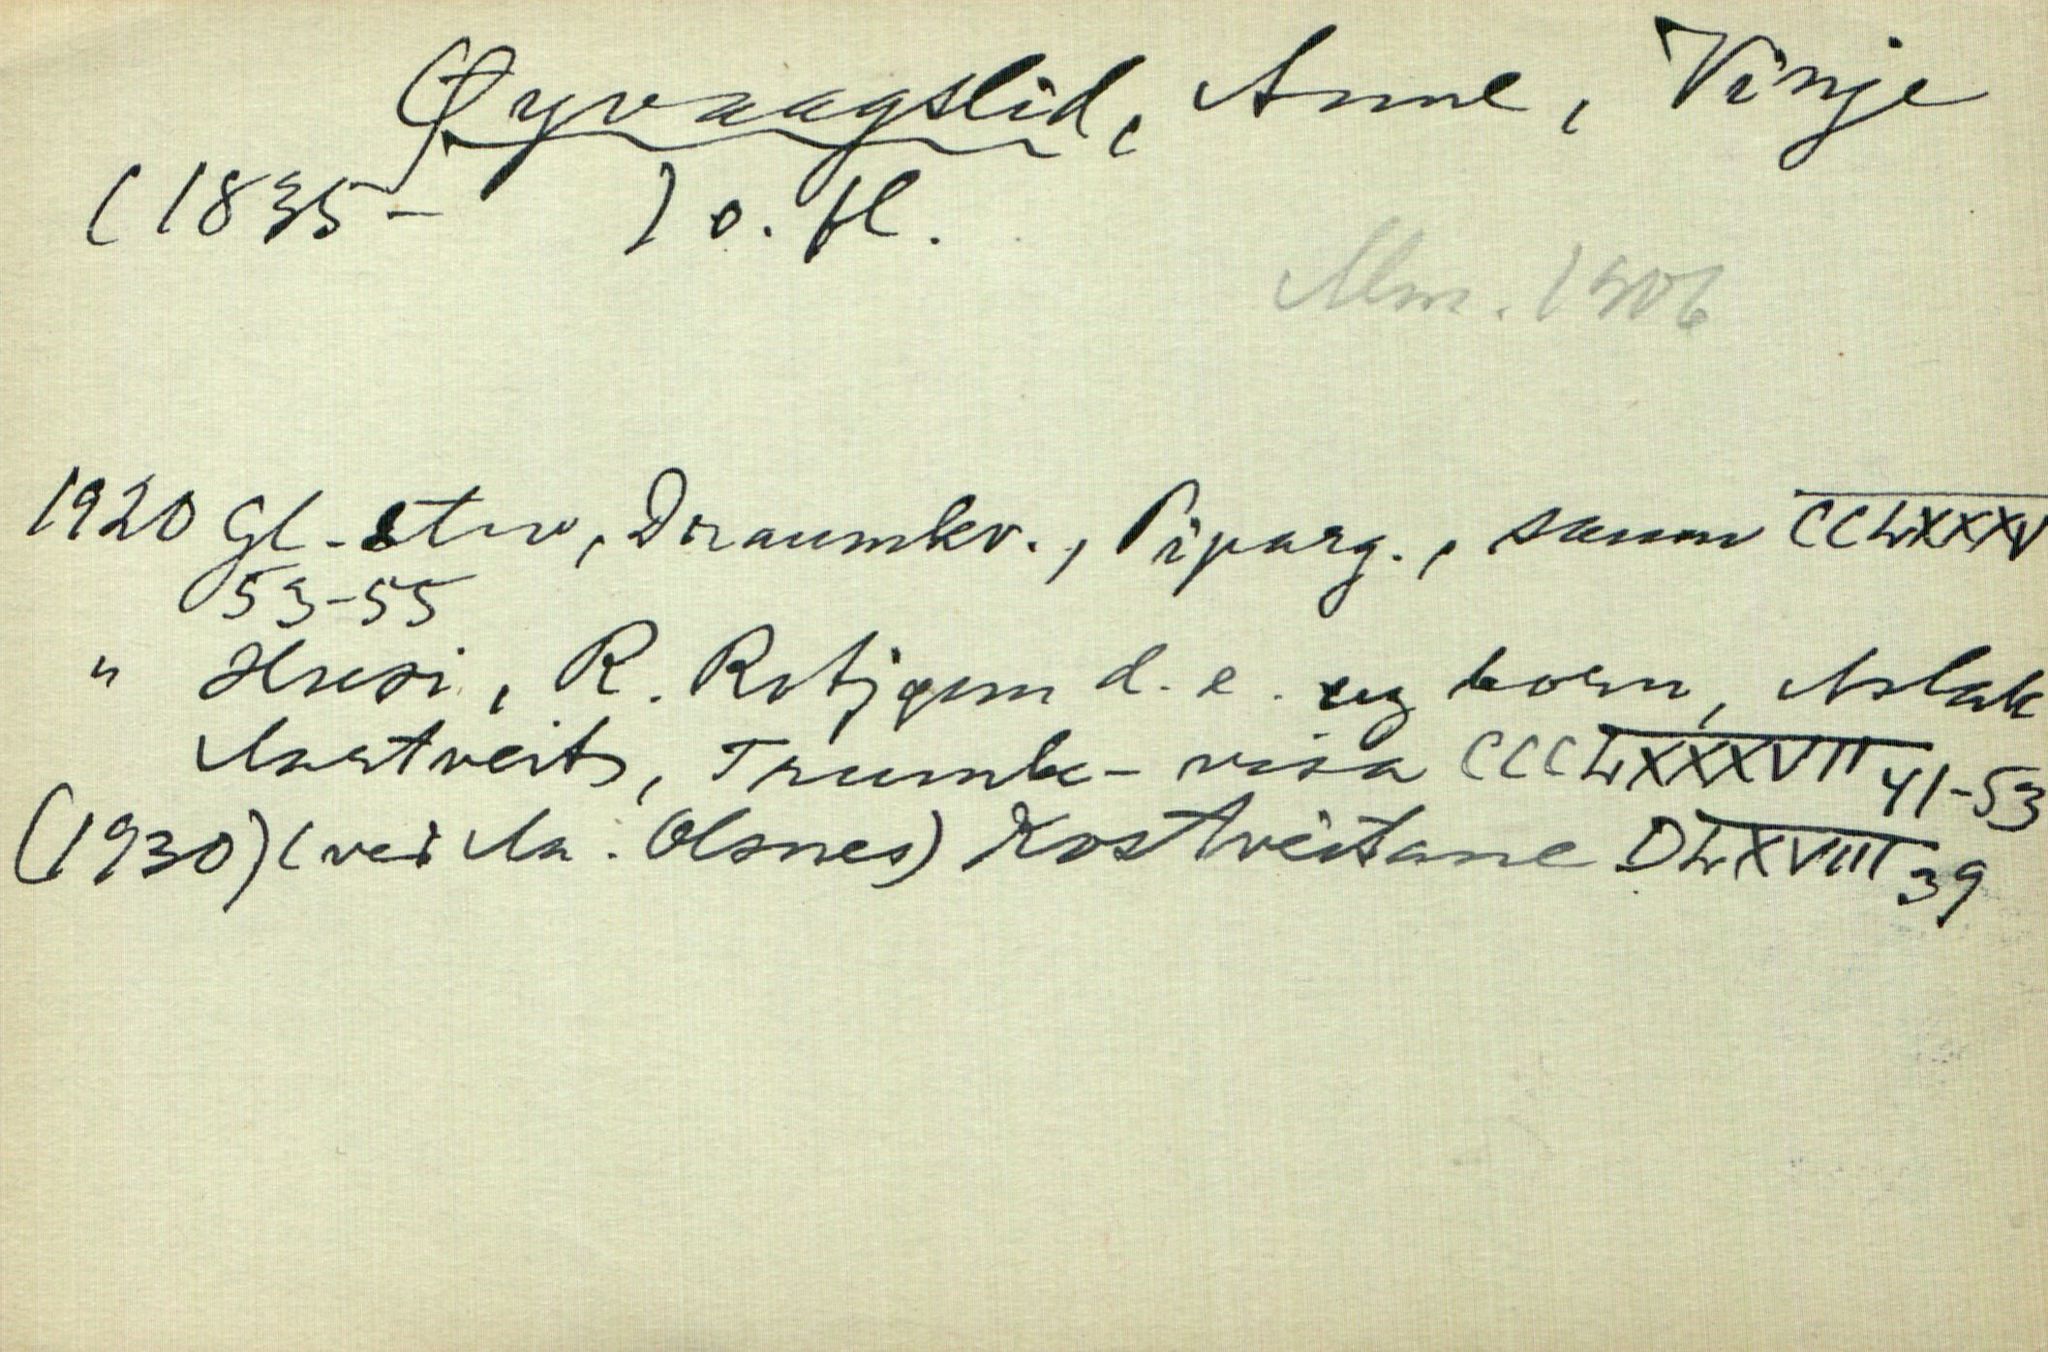 Øyvaagslid, Anne, Vinje
(1835- ) o. fl.
1906
1920 Gl-stev, Draumkv., Piparg., saum CCLXXXV
53-55
" Husi, R. d. e. og born, Aslak
Aastveit, Trumbe-visa CCCLXXXVII 41-53
(1930) (ved Aa. Olsnes) Kostveitane DLXVIII 39